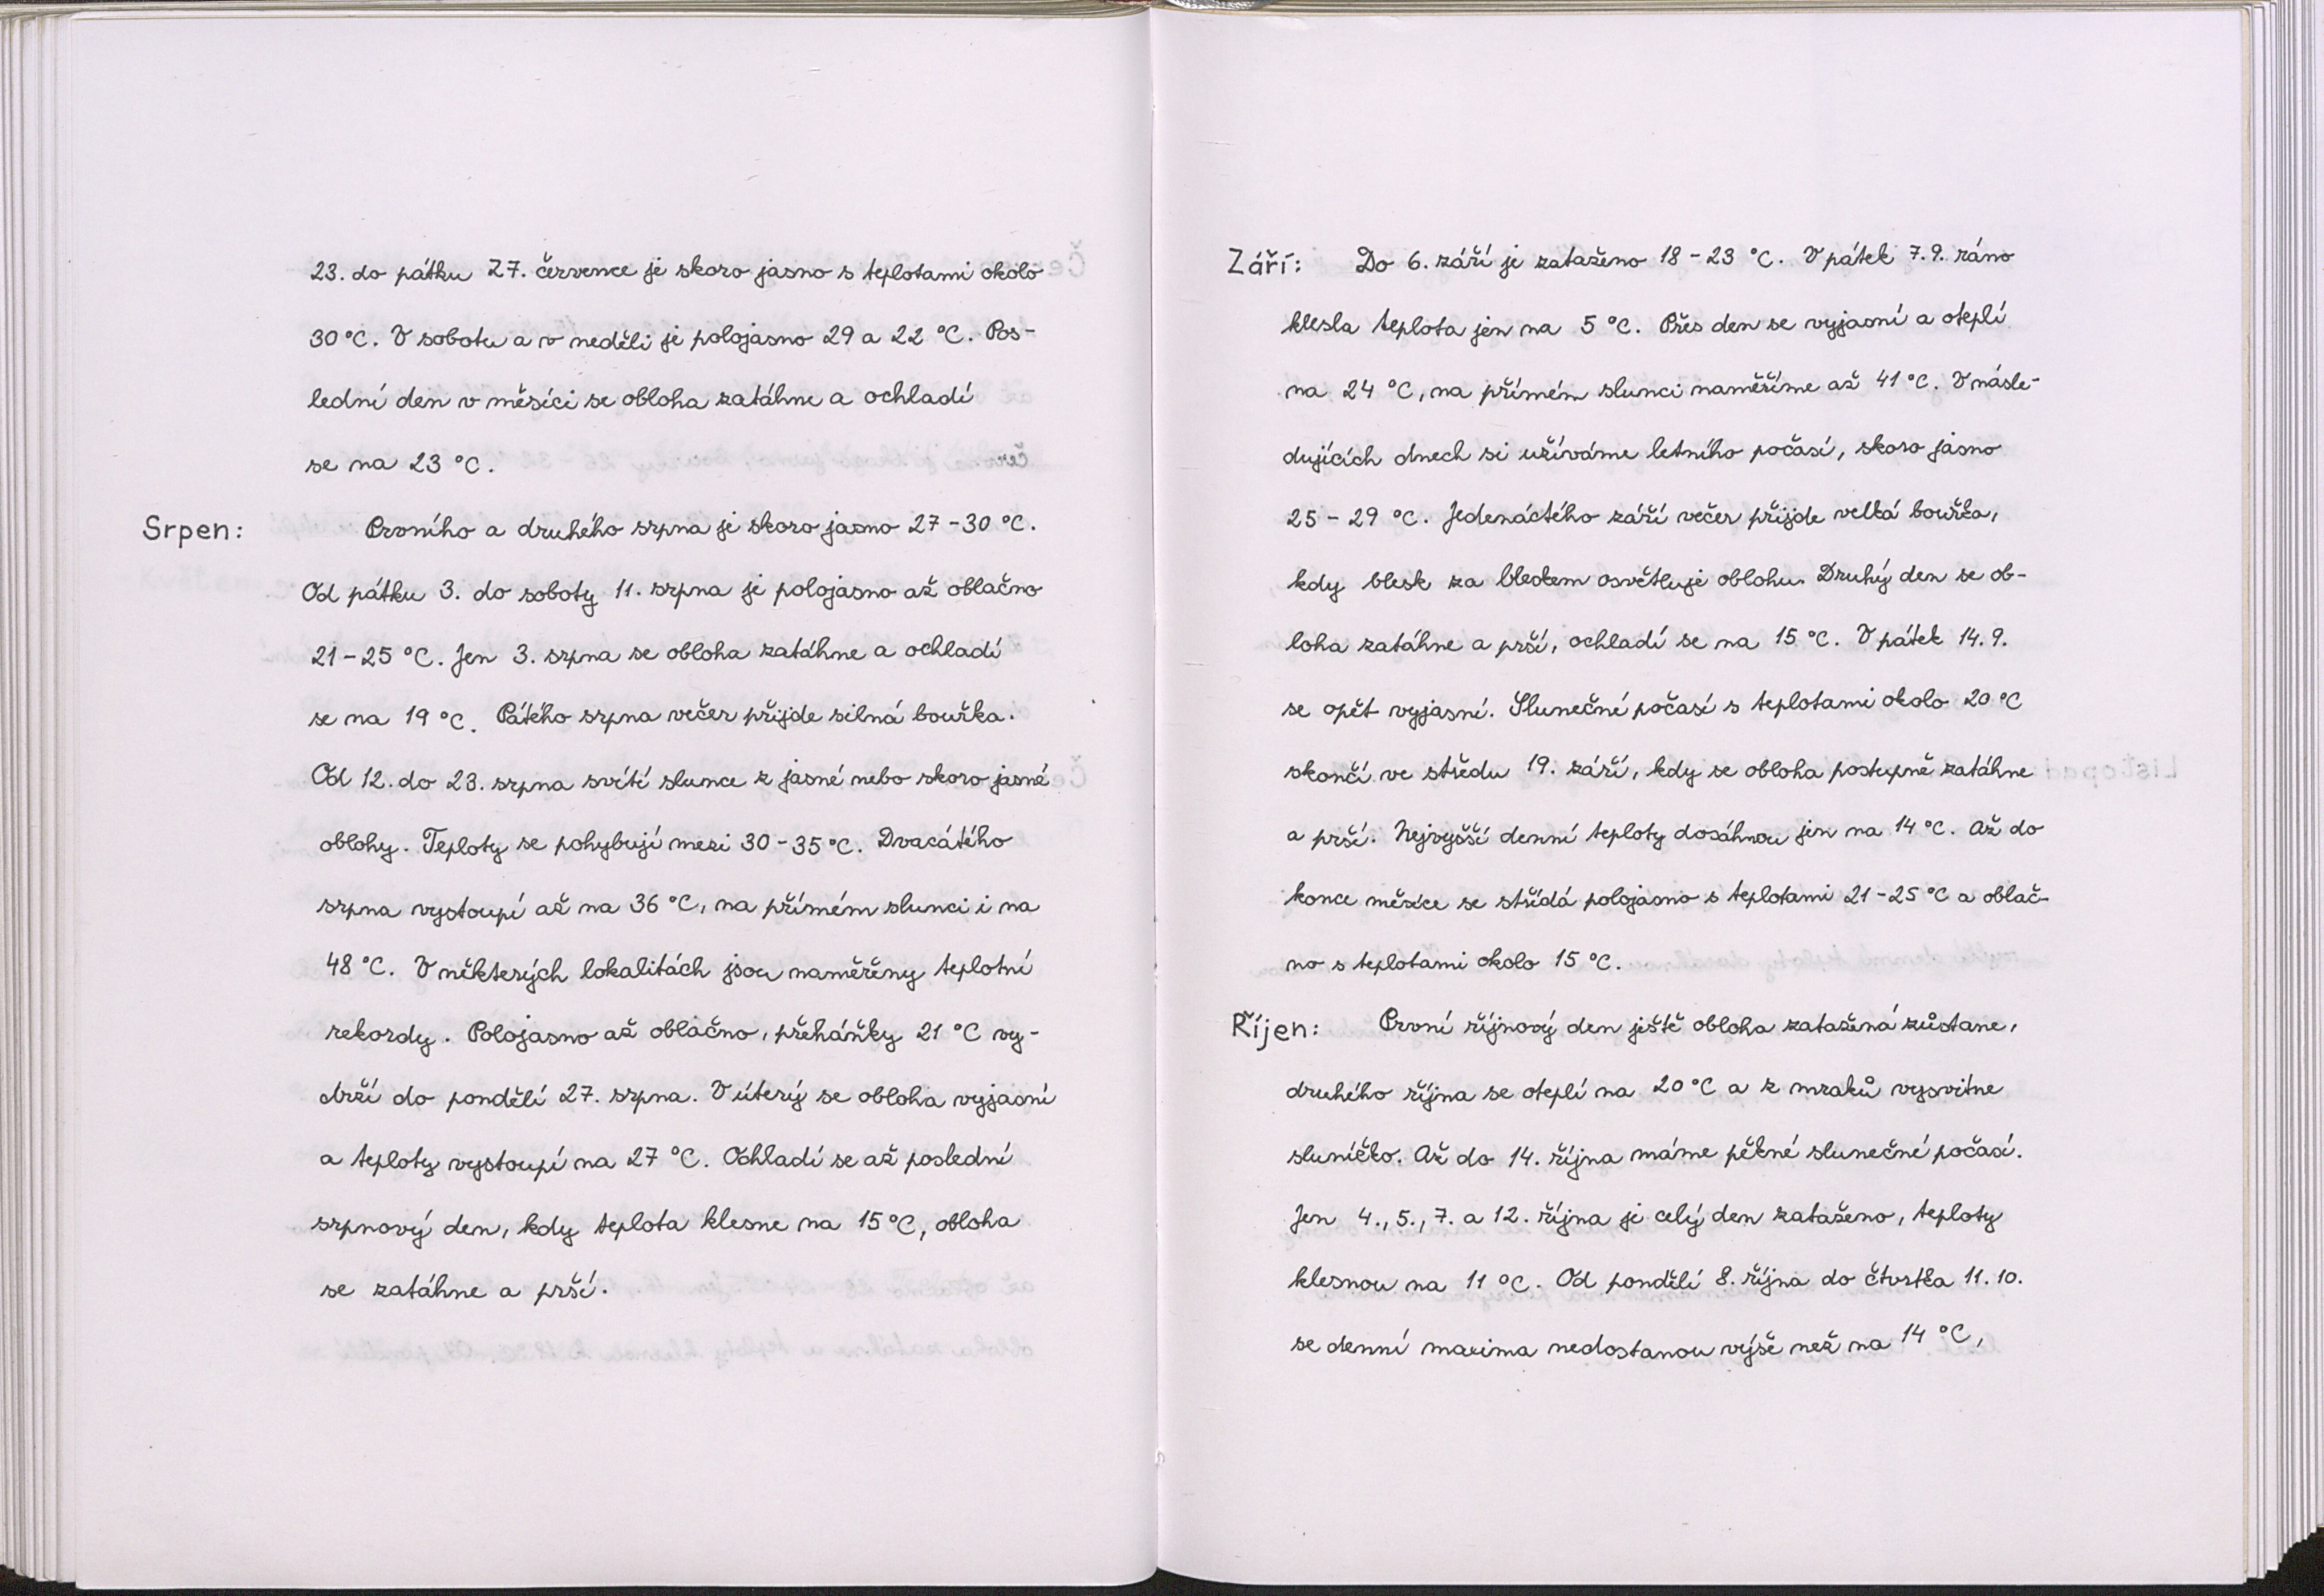 23. do pátku 27. července je skoro jasno s teplotami okolo
30 °C. V sobotu a v neděli je polojasno 29 a 22 °C. Pos-
lední den v měsíci se obloha zatáhne a ochladí
se na 23 °C.
Srpen: Prvního a druhého srpna je skoro jasno 27 - 30 °C.
Od pátku 3. do soboty 11. srpna je polojasno až oblačno
21 - 25 °C. Jen 3. srpna se obloha zatáhne a ochladí
se na 19 °C. Pátého srpna večer přijde silná bouřka.
Od 12. do 23. srpna svítí slunce z jasné nebo skoro jasné
oblohy. Teploty se pohybují mezi 30 - 35 °C. Dvacátého
srpna vystoupí až na 36 °C, na přímém slunci i na
48 °C. V některých lokalitách jsou naměřeny teplotní
rekordy. Polojasno až oblačno, přeháňky 21 °C vy-
drží do pondělí 27. srpna. V úterý se obloha vyjasní
a teploty vystoupí na 27 °C. Ochladí se až poslední
srpnový den, kdy teplota klesne na 15 °C, obloha
se zatáhne a prší.
Září: Do 6. září je zataženo 18 - 23 °C. V pátek 7.9. ráno
klesla teplota jen na 5 °C. Přes den se vyjasní a oteplí
na 24 °C, na přímém slunci naměříme až 41 °C. V násle-
dujících dnech si užíváme letního počasí, skoro jasno
25 - 29 °C. Jedenáctého září večer přijde velká bouřka,
kdy blesk za bleskem osvětluje oblohu. Druhý den se ob-
loha zatáhne a prší, ochladí se na 15 °C. V pátek 14.9.
se opět vyjasní. Slunečné počasí s teplotami okolo 20 °C
skončí ve středu 19. září, kdy se obloha postupně zatáhne
a prší. Nejvyšší denní teploty dosáhnou jen na 14 °C. Až do
konce měsíce se střídá polojasno s teplotami 21 - 25 °C a oblač-
no s teplotami okolo 15 °C.
Říjen: První říjnový den ještě obloha zatažená zůstane,
druhého října se oteplí na 20 °C a z mraků vysvitne
sluníčko. Až do 14. října máme pěkné slunečné počasí.
Jen 4., 5., 7. a 12. října je celý den zataženo, teploty
klesnou na 11 °C. Od pondělí 8. října do čtvrtka 11.10.
se denní maxima nedostanou výše než na 14 °C,